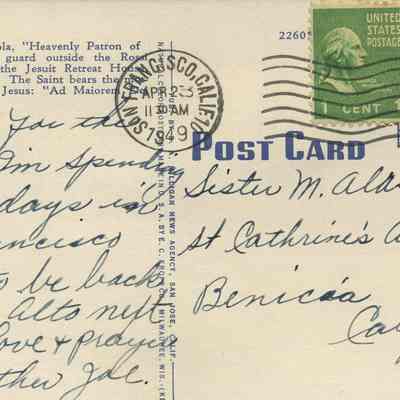 ola, "Heavenly Patron of
guard outside the Rosa
the Jesuit Retreat House
The Saint bears the
Jesus: "Ad Maiorem
SAN FRANCISCO, CALIF.
APR 23
11 30 AM
1949
2260
UNITED
STATES
POSTAGE
1 CENT 1
POST CARD
NEWS AGENCY, SAN JOSE, CALIF.
MILWAUKEE, WIS.
for the
I'm spending
days in
ncisco
to be back
Alto next
love & prayers
ther Zoe.
Sister M. Ald
St Catherine's A
Benicia
Ca